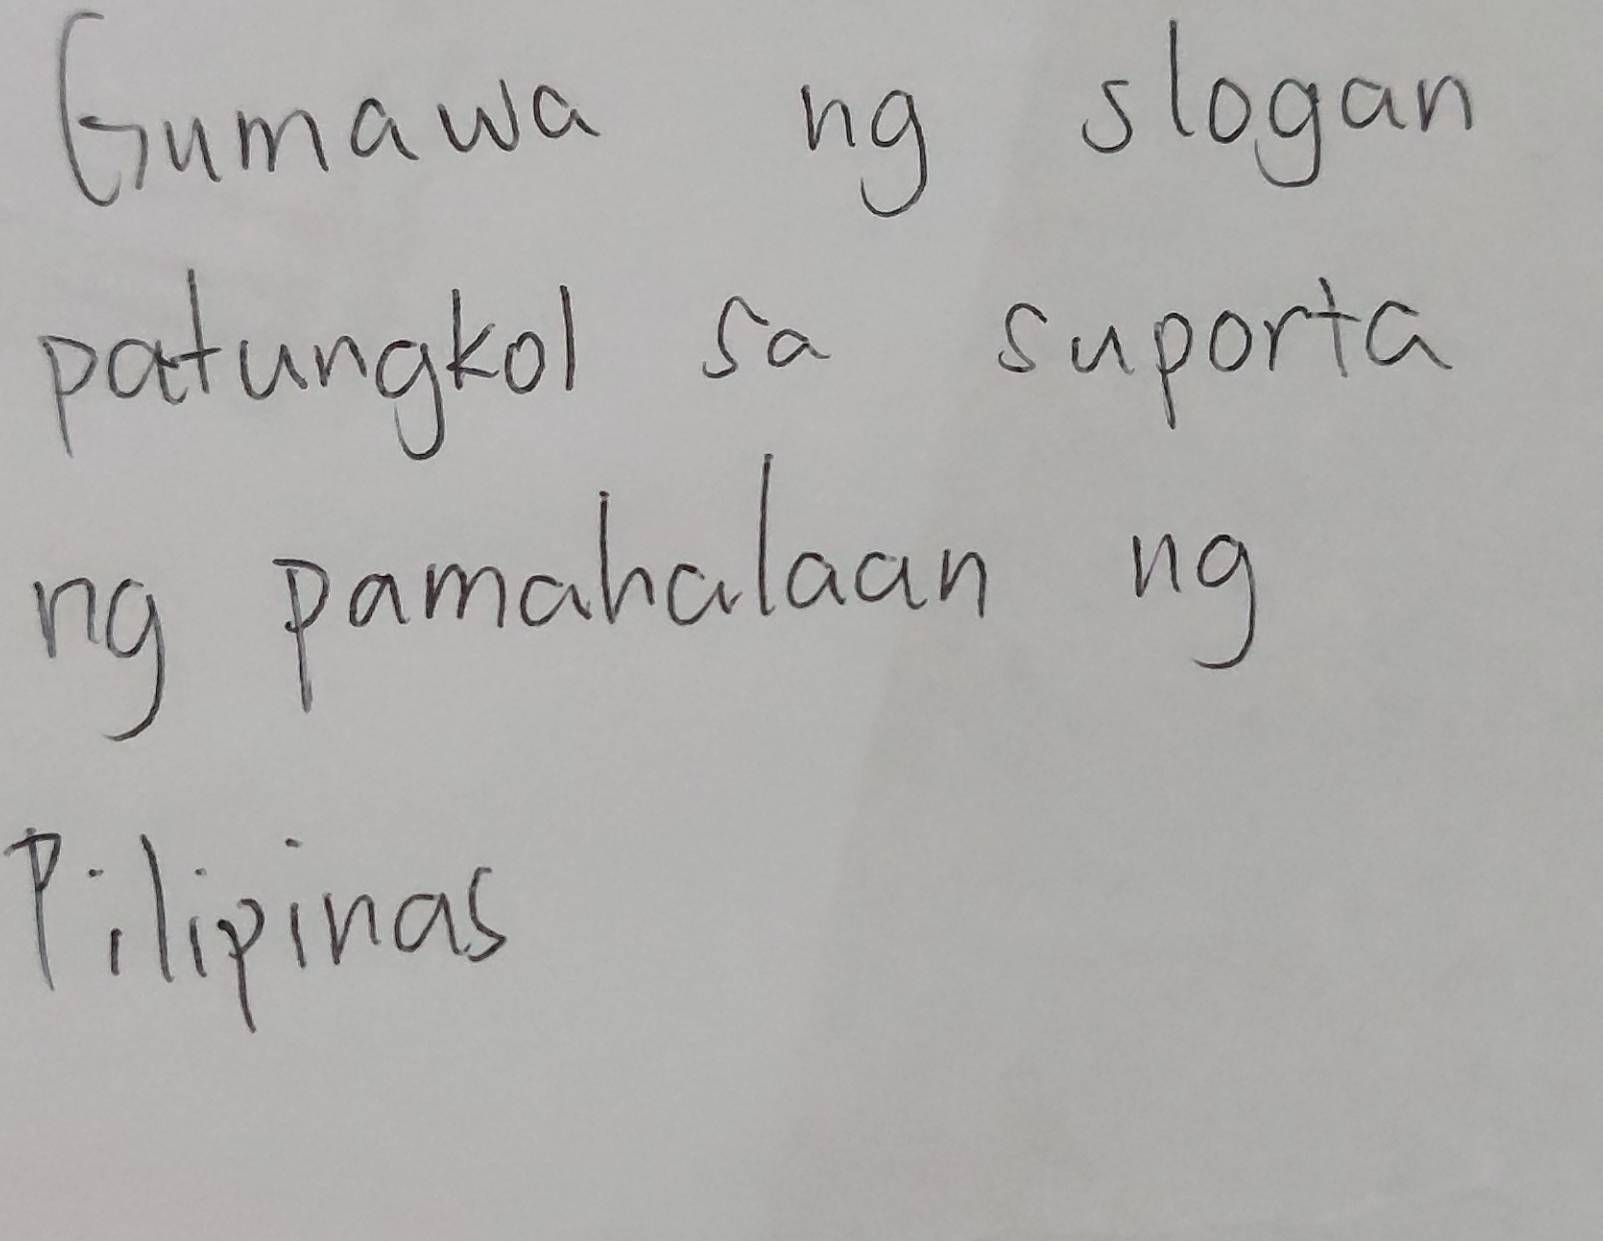 Gumawa ng slogan
patungkol sa suporta
ng pamahalaan ng
Pilipinas